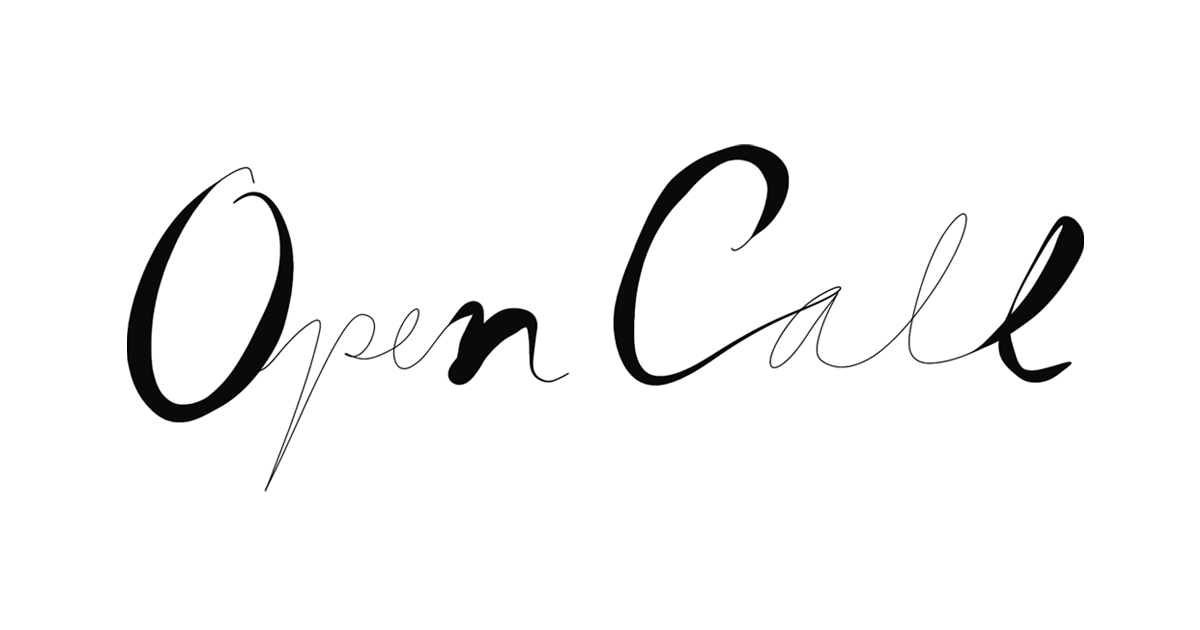 Open Call